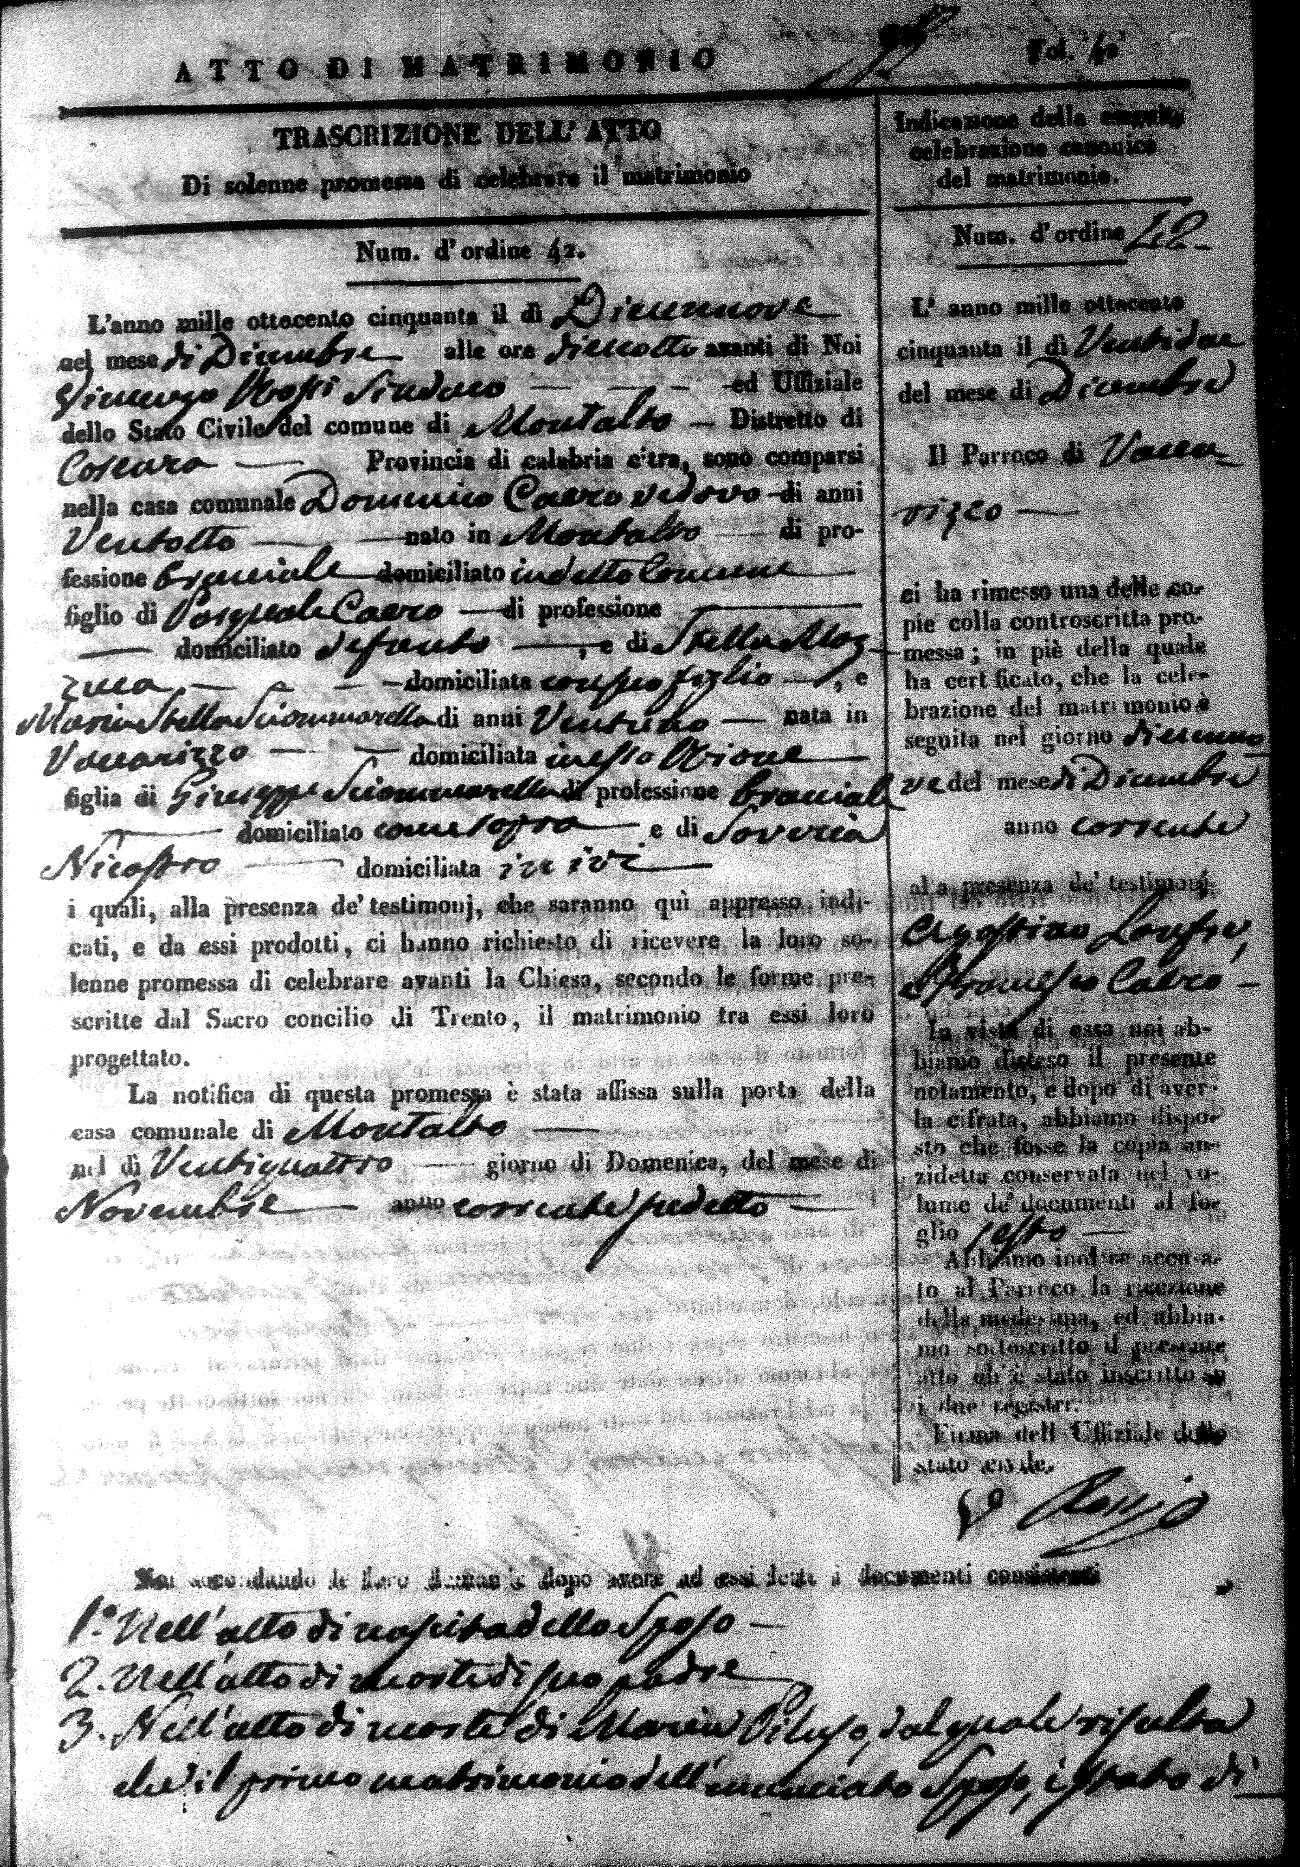 ATTO DI MATRIMONIO
Fol. 40
TRASCRIZIONE DELL' ATTO
Di solenne promessa di celebrare il matrimonio
Num. d' ordine 42.
L'anno mille ottocento cinquanta il dì Diecennove
nel mese di Dicembre alle ore dieciotto avanti di Noi
Vincenzo Rossi Sindaco ed Uffiziale
dello Stato Civile del comune di Montalto Distretto di
Cosenza Provincia di calabria c'tra, sono comparsi
nella casa comunale Domenico Caero vedovo di anni
Ventotto nato in Montalto di pro-
fessione Bracciale domiciliato in detto Comune
figlio di Pasquale Caero di professione
domiciliato defunto , e di Stella Maz-
zuca domiciliata con suo figlio , e
Maria Stella Sciommarella di anni Ventuno nata in
Vaccarizzo domiciliata in esso Rione
figlia di Giuseppe Sciommarella di professione Bracciale
domiciliato come sopra e di Soveria
Nicastro domiciliata in ivi
i quali, alla presenza de' testimonj, che saranno quì appresso indi-
cati, e da essi prodotti, ci hanno richiesto di ricevere la loro so-
lenne promessa di celebrare avanti la Chiesa, secondo le forme pre-
scritte dal Sacro concilio di Trento, il matrimonio tra essi loro
progettato.
La notifica di questa promessa è stata affissa sulla porta della
casa comunale di Montalto
nel dì Ventiquattro giorno di Domenica, del mese di
Novembre anno corrente sudetto
Indicazione della seguita
celebrazione canonica
del matrimonio.
Num. d' ordine 42.
L' anno mille ottocento
cinquanta il dì Ventidue
del mese di Dicembre
Il Parroco di Vacca-
rizzo
ci ha rimesso una delle co-
pie colla controscritta pro-
messa; in piè della quale
ha cert ficato, che la cele-
brazione del matrimonio è
seguita nel giorno diecenno
ve del mese di Dicembre
anno corrente
al a presenza de' testimonj
Agostino
e Francesco Caero
In vista di essa noi ab-
biamo disteso il presente
notamento, e dopo di aver-
la cifrata, abbiamo dispo-
sto che fosse la copia an-
zidetta conservata nel vo-
lume de' documenti al fo-
glio sesto
Abbiamo inoltre accusa-
to al Parroco la ricezione
della medesima, ed abbia-
mo sottoscritto il presente
atto ch' è stato inscritto su
i due registri.
Firma dell Uffiziale dello
stato civile.
V Rossi
Noi secondando le loro domande dopo avere ad essi lette i documenti consistenti
1.° Nell'atto di nascita dello Sposo
2. Nell'atto di morte di suo padre
3. Nell'atto di morte di Maria Piluso, dal quale risulta
che il primo matrimonio dell'enunciato Sposo, è stato di-